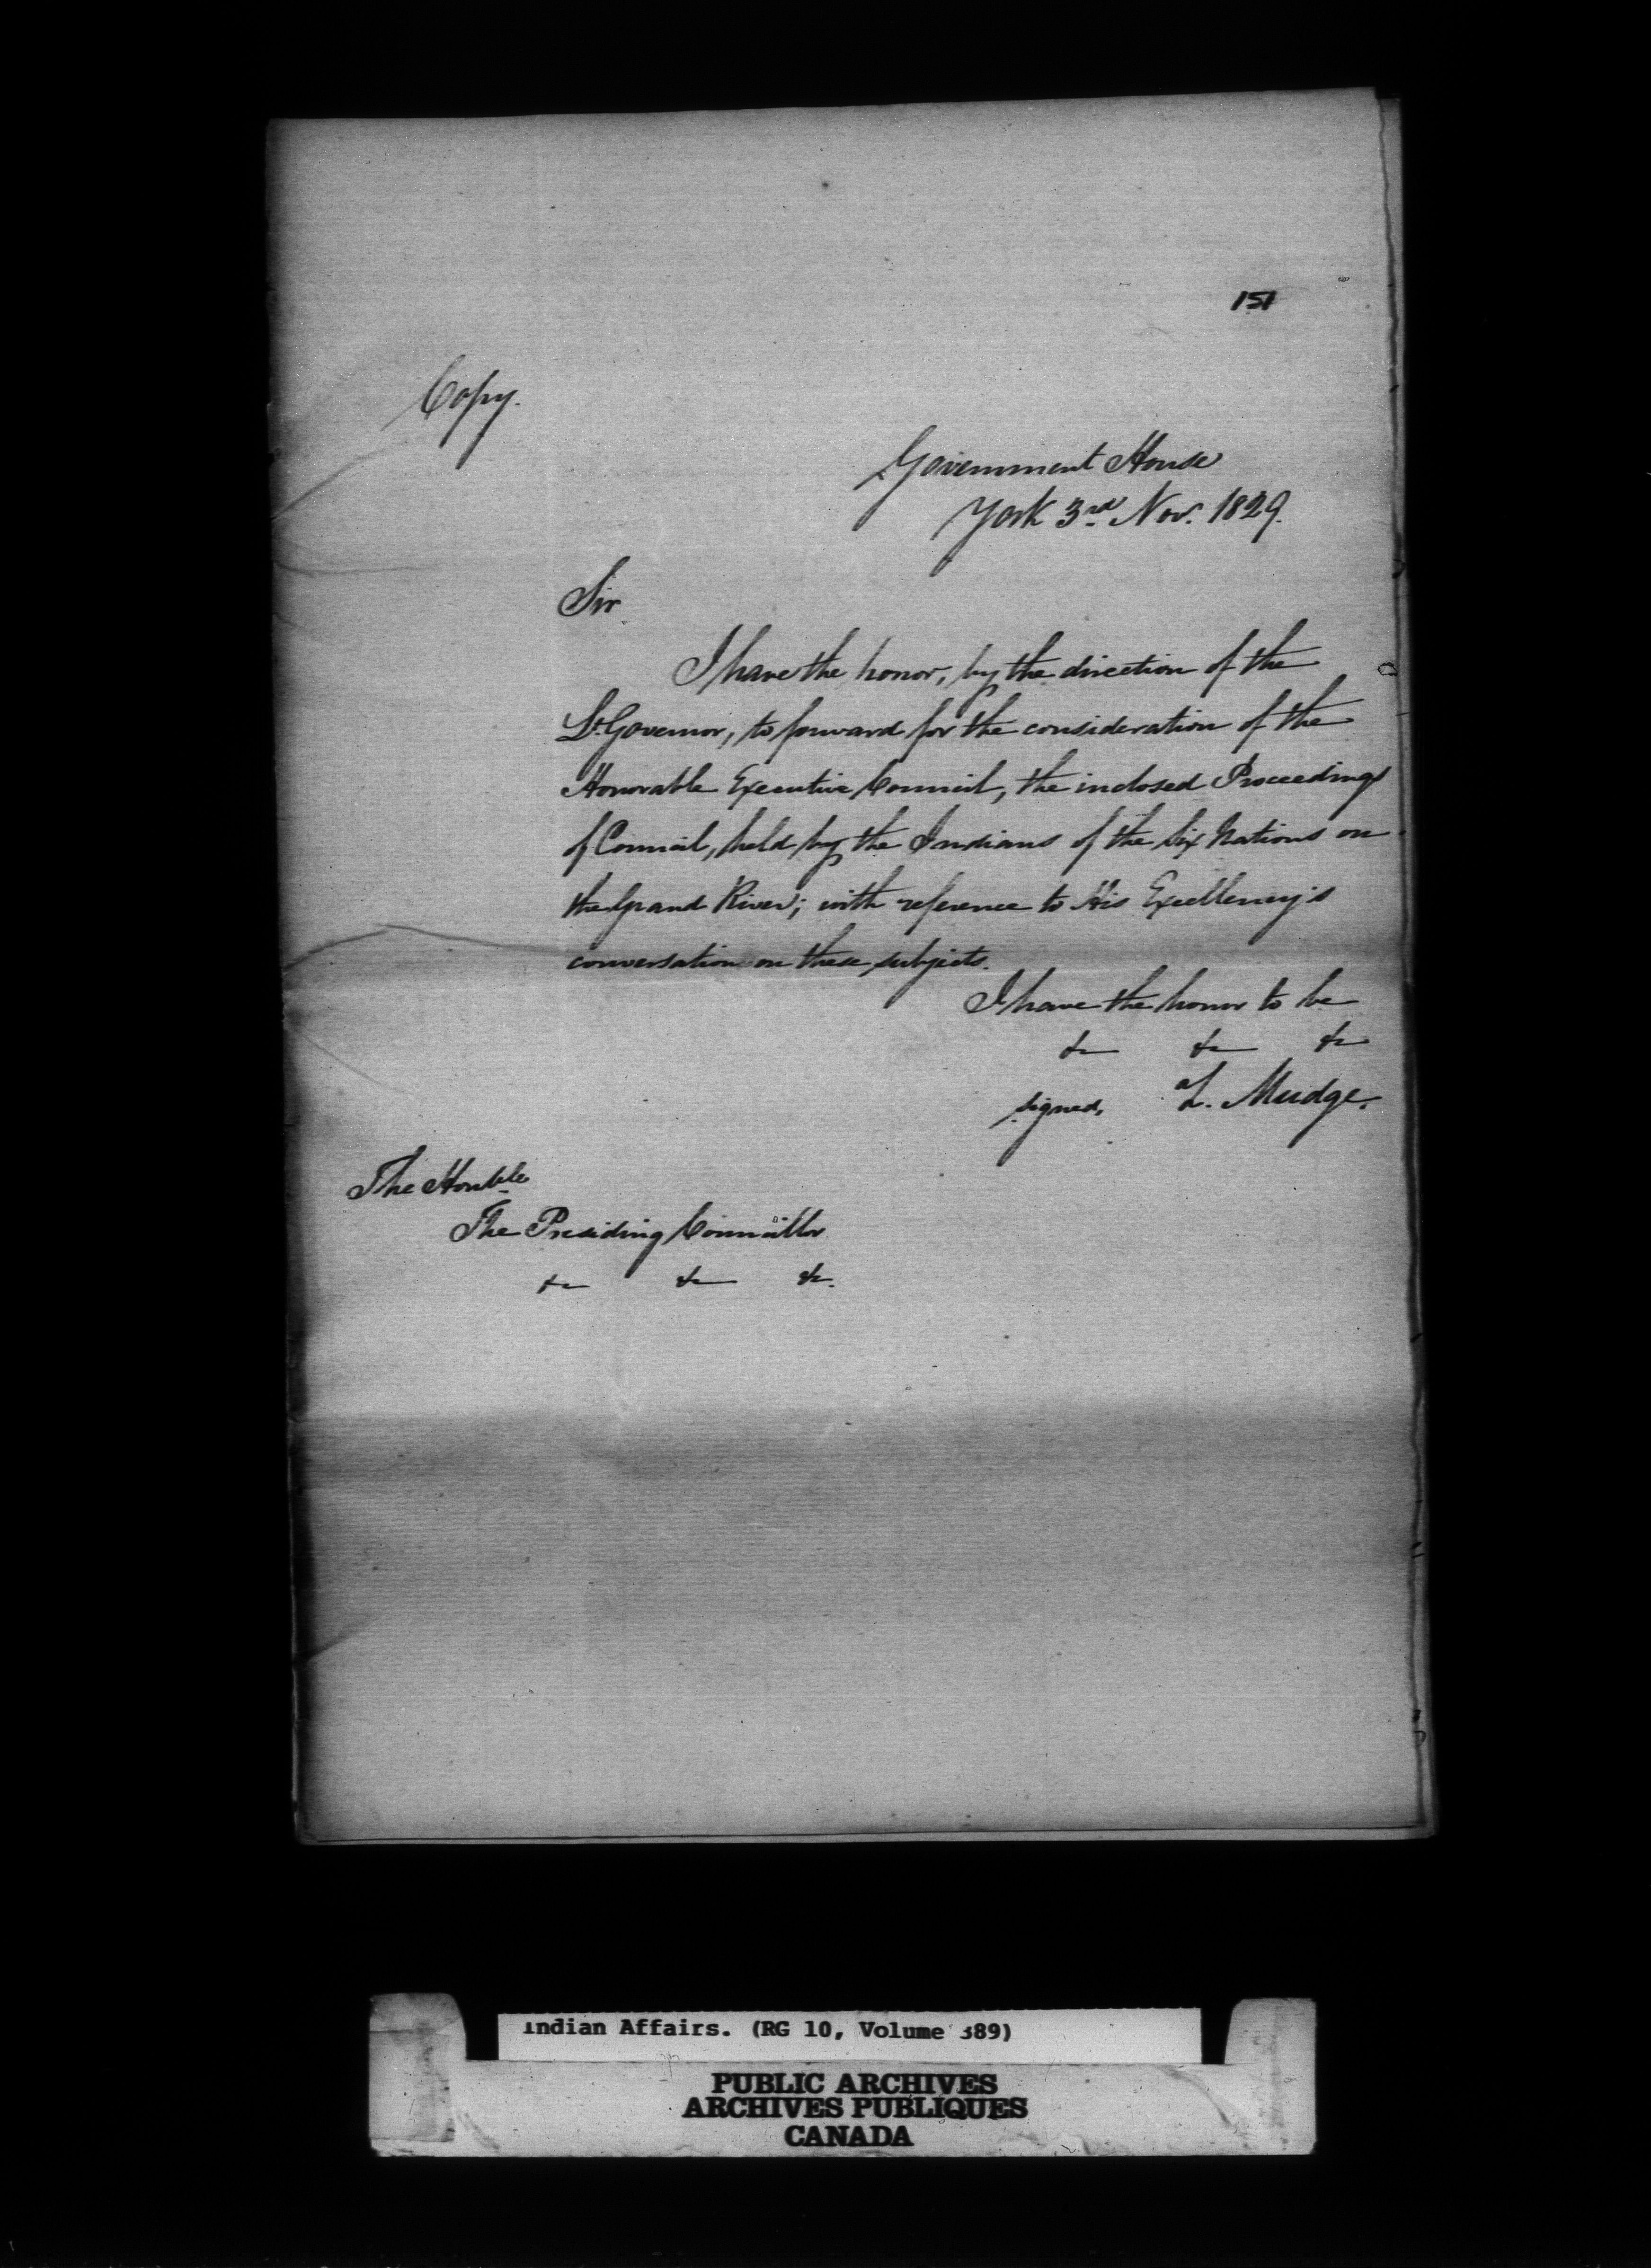 151
Copy.
Government House
York 3rd Nov. 1829.
Sir
I have the honor, by the direction of the
Lt. Governor, to forward for the consideration of the
Honorable Executive Council, the inclosed Proceedings
of Council, held by the Indians of the Six Nations on
the Grand River; with reference to His Excellency's
conversation on these subjects.
I have the honor to be
&c &c &c
signed, Z. Mudge.
The Honble
The Presiding Councillor
&c &c &c.
Indian Affairs. (RG 10, Volume 389)
PUBLIC ARCHIVES
ARCHIVES PUBLIQUES
CANADA